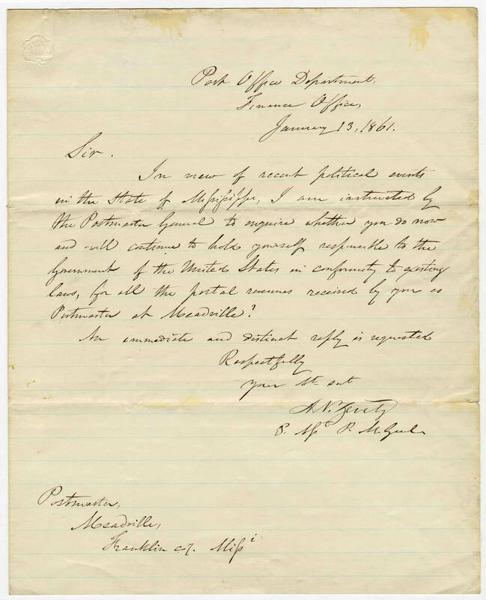 Post Office Department,
Finance Office,
January 23, 1861.
Sir.
In view of recent political events
in the State of Mississippi, I am instructed by
the Postmaster General to enquire whether you do now
and will continue to hold yourself responsible to the
Government of the United States in conformity to existing
laws, for all the postal revenues received by you as
Postmaster at Meadville?
An immediate and distinct reply is requested
Respectfully
Your St. out
A. N. Zevely
3. Asst P. M. Genl.
Postmaster,
Meadville,
Franklin co. Missi